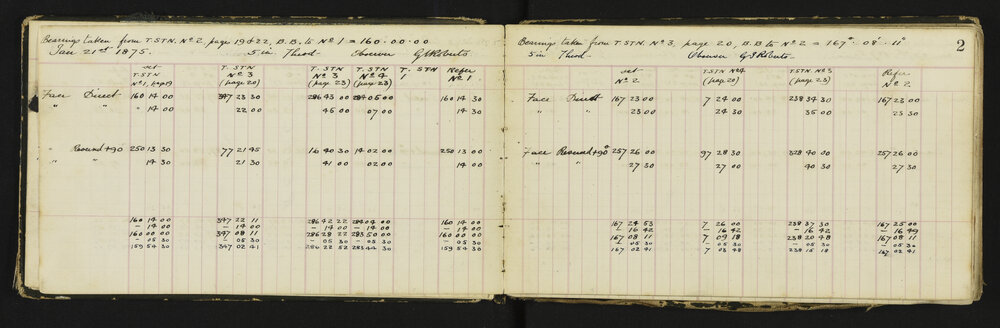 Bearings taken from T. STN. No 2 pages 19 & 22, B.B. to No 1 = 160 . 00 . 00
Jan 21st 1875. 5 in. Theod. Observer G J Roberts
set T. STN No 1, page 19 T. STN No 3 (page 20) T. STN No 3 (page 23) T. STN No 4 (page 23) T. STN 1 Refer No 1
Face Direct 160 14 00 347 23 30 286 43 00 284 05 00 160 14 30
" " 14 00 22 00 46 00 07 00 14 30
" Reversed +90 250 13 30 77 21 45 16 40 30 14 02 00 250 13 00
" " 14 30 21 30 41 00 02 00 14 00
160 14 00 347 22 11 286 42 22 284 04 00 160 14 00
— 14 00 — 14 00 — 14 00 — 14 00 — 14 00
160 00 00 347 08 11 286 28 22 283 50 00 160 00 00
— 05 30 — 05 30 — 05 30 — 05 30 — 05 30
159 54 30 347 02 41 286 22 52 283 44 30 159 54 30
2
Bearings taken from T. STN. No 3, page 20, B.B. to No 2 = 167° . 08' . 11"
5 in Theod. Observer G J Roberts.
set No 2 T. STN No 4 (page 23) T. STN No 3 (page 23) Refer No 2
Face Direct 167 23 00 7 24 00 238 34 30 167 23 00
" " 23 00 24 30 35 00 23 30
Face Reversed +90° 257 26 00 97 28 30 328 40 00 257 26 00
" " 27 30 27 00 40 30 27 30
167 24 53 7 26 00 238 37 30 167 25 00
— 16 42 — 16 42 — 16 42 — 16 49
167 08 11 7 09 18 238 20 48 167 08 11
— 05 30 — 05 30 — 05 30 — 05 30
167 02 41 7 03 48 238 15 18 167 02 41